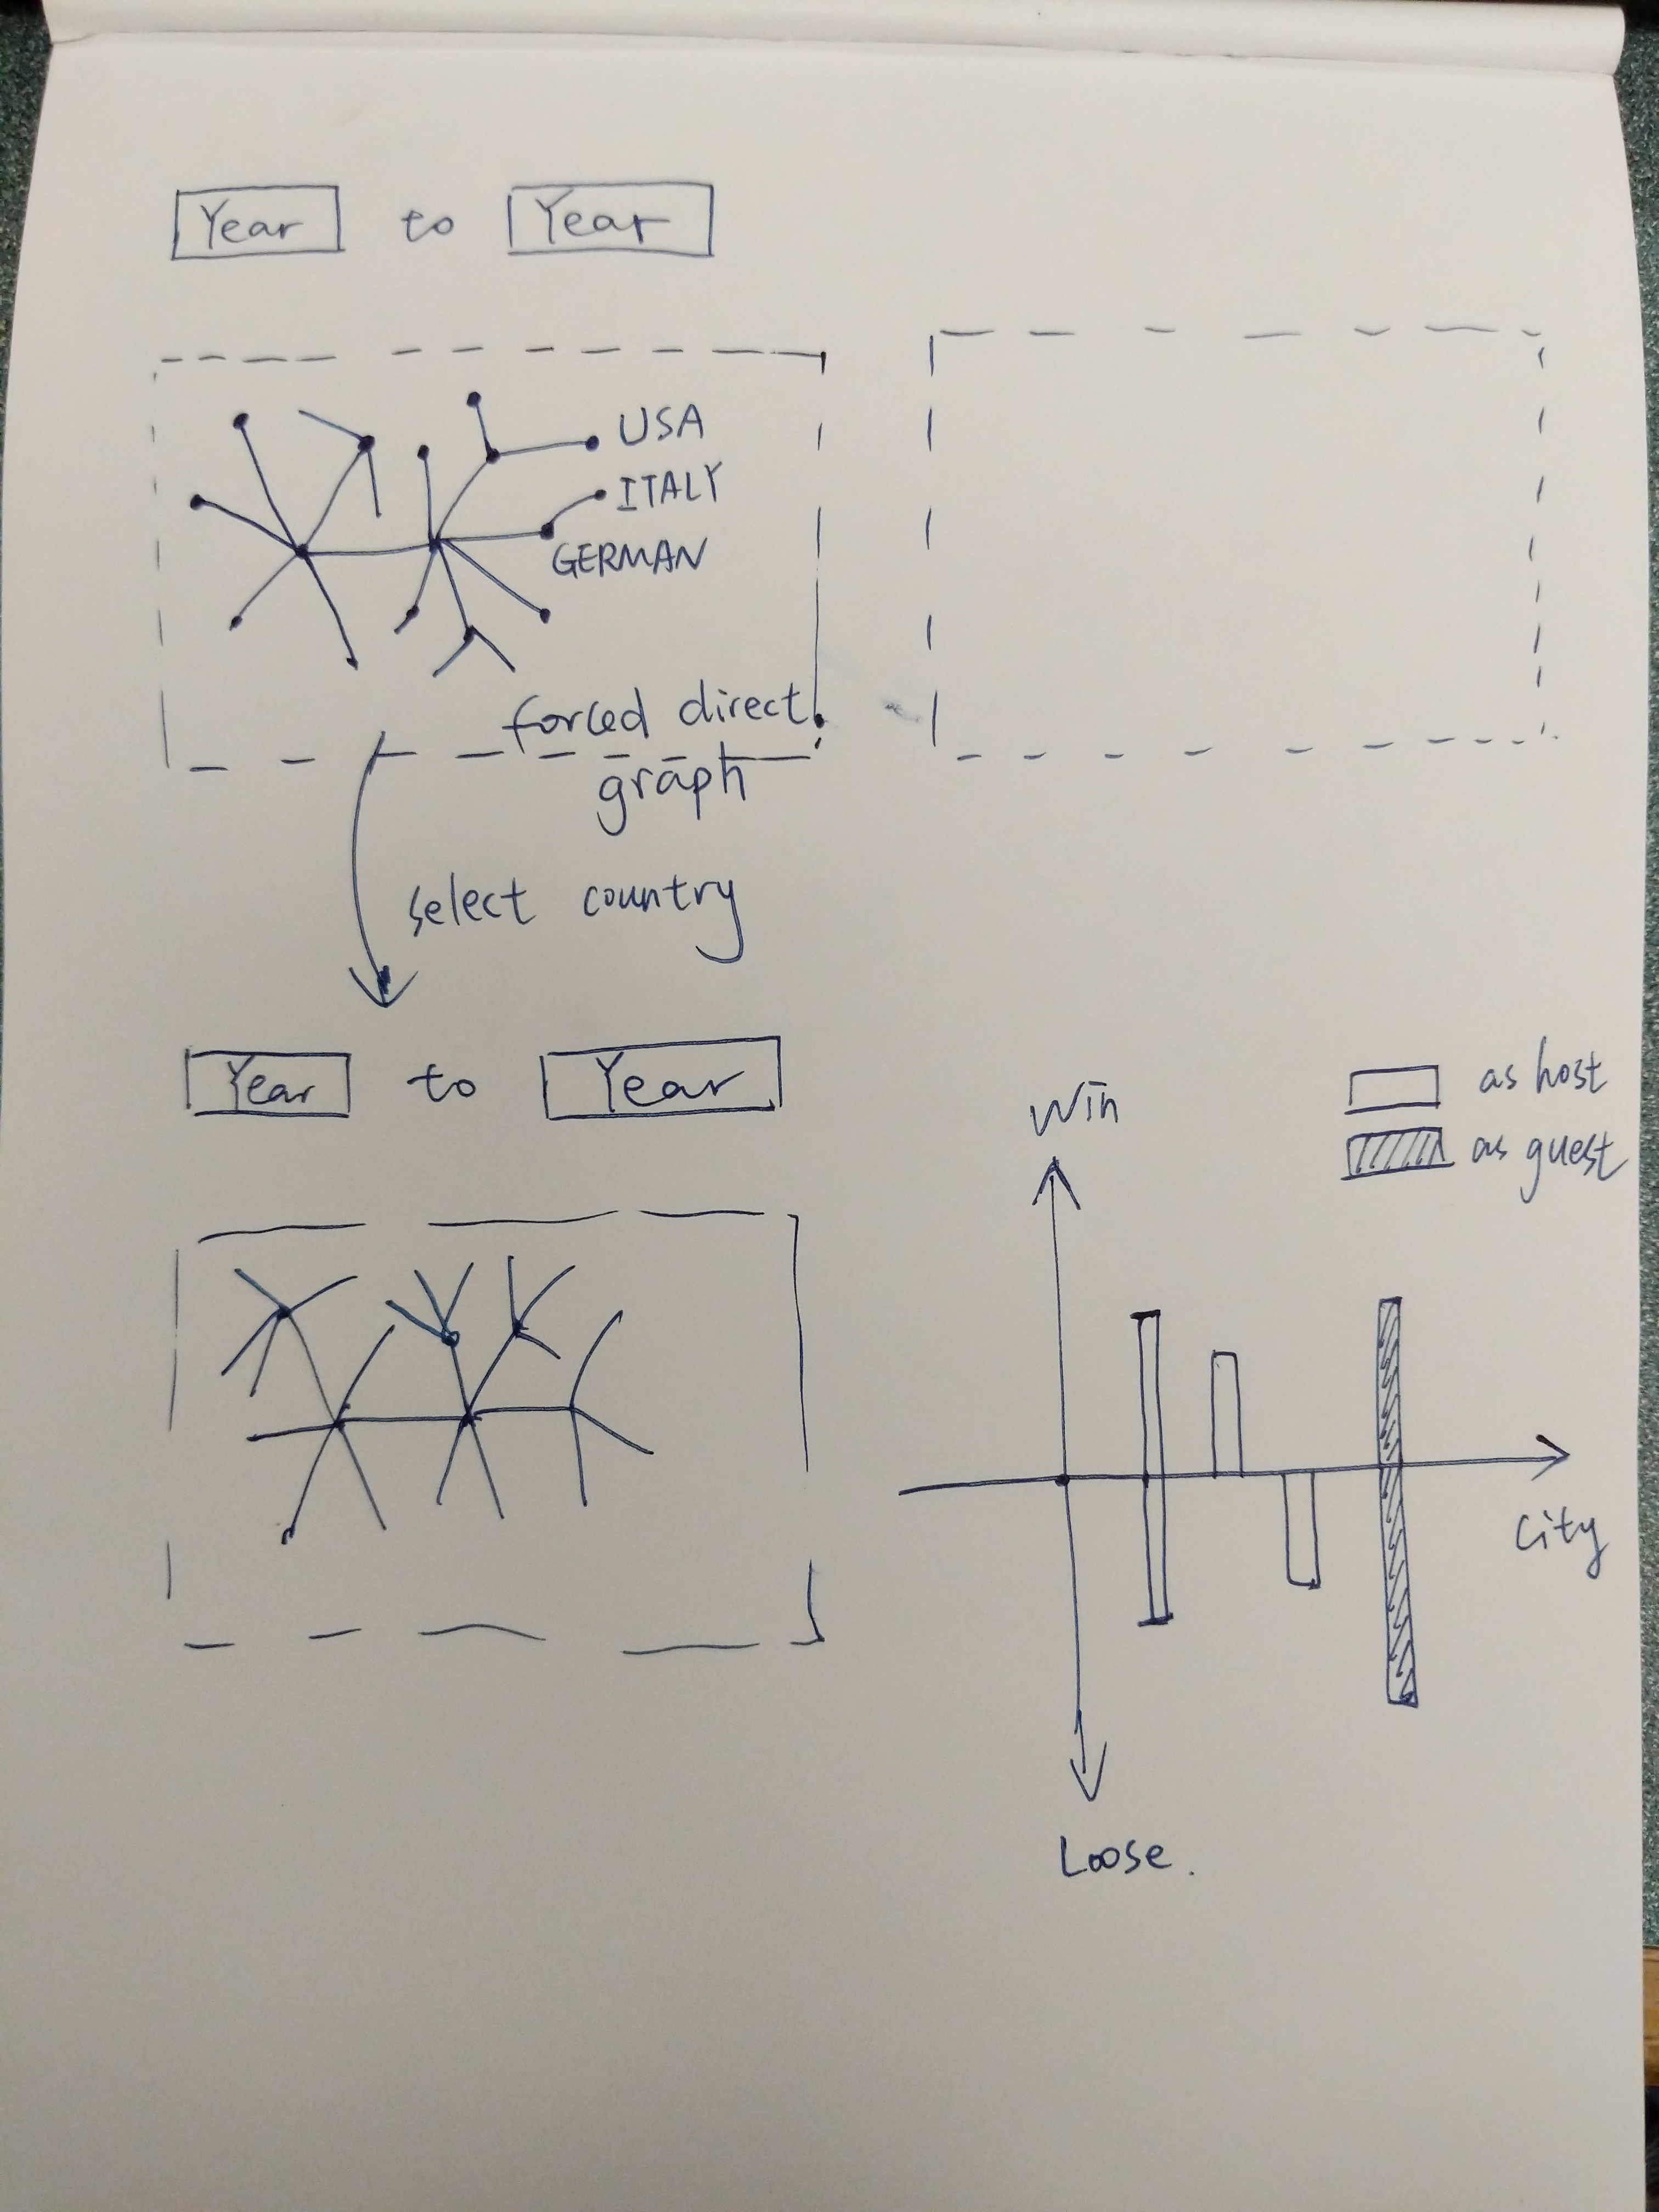 Year to Year
USA
ITALY
GERMAN
forced direct
graph
select country
Year to Year
Win
as host
as guest
City
Loose.